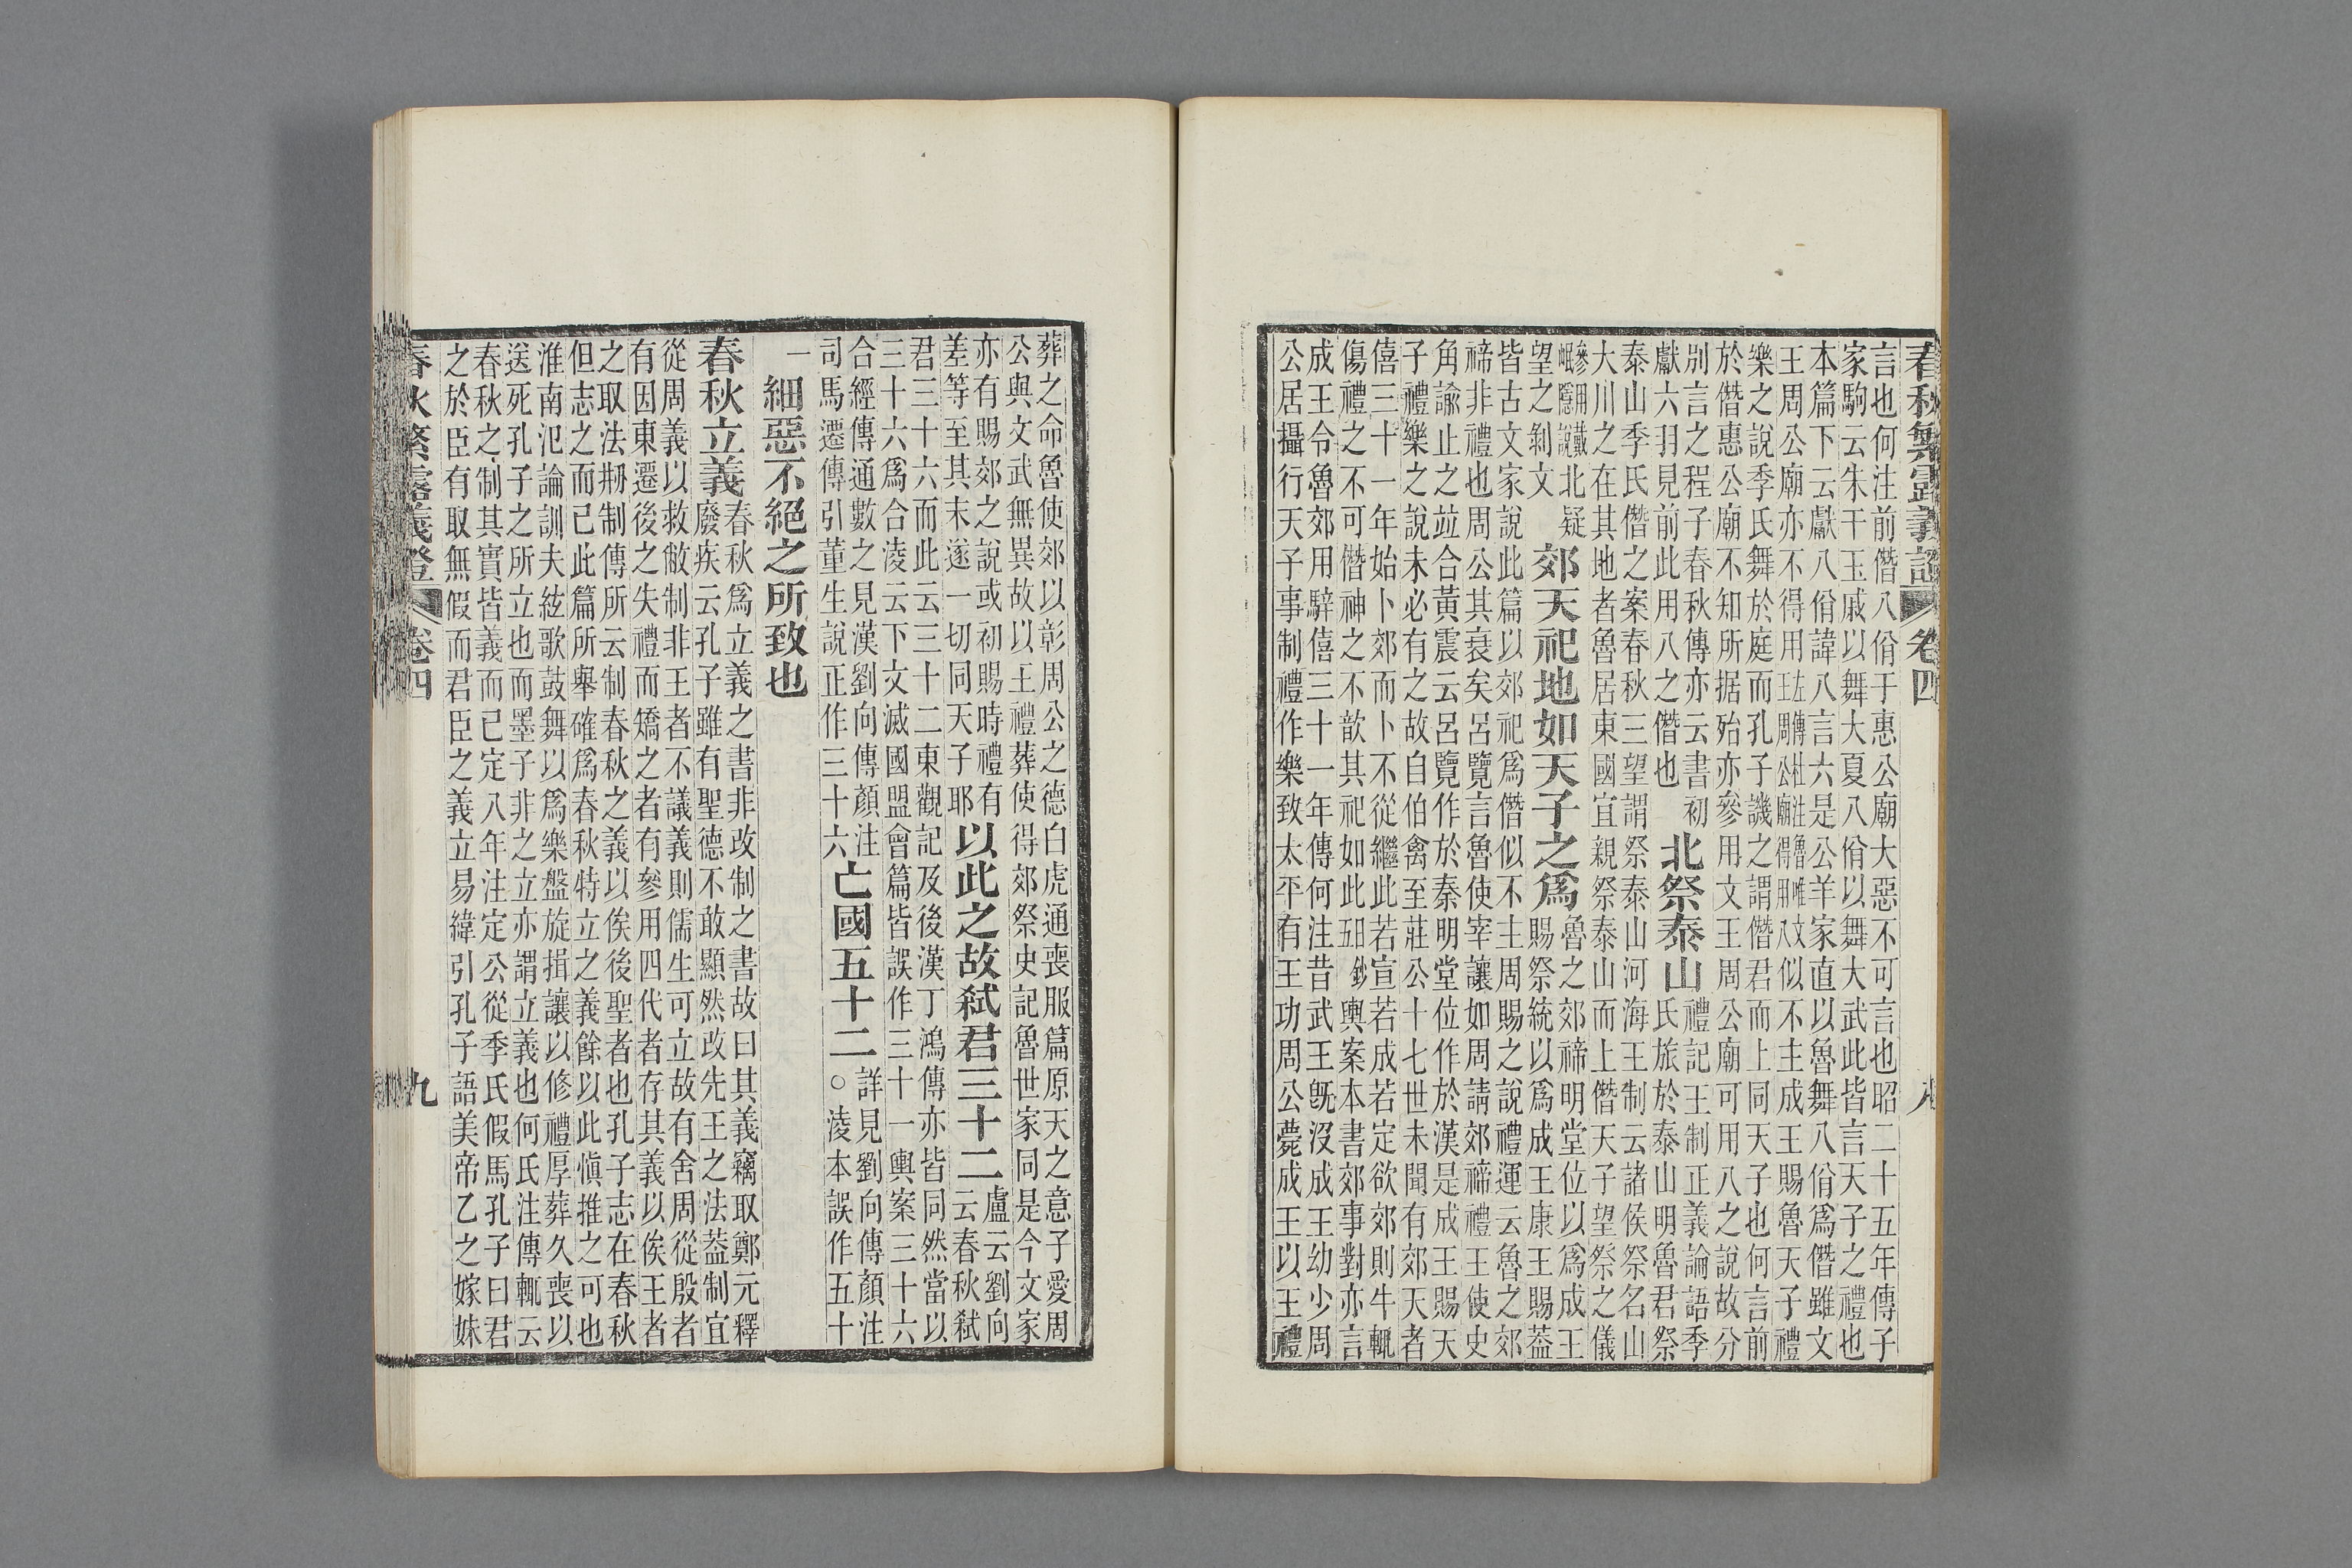 春秋繁露義證 卷四 八
言也何注前僭八佾于惠公廟大惡不可言也昭二十五年傳子
家駒云朱干玉戚以舞大夏八佾以舞大武此皆言天子之禮也
本篇下云獻八佾諱八言六是公羊家直以魯舞八佾爲僭雖文
王周公廟亦不得用左傳杜注魯唯文王周公廟得用八似不主成王賜魯天子禮
樂之說季氏舞於庭而孔子譏之謂僭君而上同天子也何言前
於僭惠公廟不知所据殆亦參用文王周公廟可用八之說故分
別言之程子春秋傳亦云書初
獻六羽見前此用八之僭也
北祭泰山
禮記王制正義論語季
氏旅於泰山明魯君祭
泰山季氏僭之案春秋三望謂祭泰山河海王制云諸侯祭名山
大川之在其地者魯居東國宜親祭泰山而上僭天子望祭之儀
參用戴岷隱說北疑
望之剝文
郊天祀地如天子之爲
魯之郊禘明堂位以爲成王
賜祭統以爲成王康王賜蓋
皆古文家說此篇以郊祀爲僭似不主周賜之說禮運云魯之郊
禘非禮也周公其衰矣呂覽言魯使宰讓如周請郊禘禮王使史
角諭止之竝合黃震云呂覽作於秦明堂位作於漢是成王賜天
子禮樂之說未必有之故自伯禽至莊公十七世未聞有郊天者
僖三十一年始卜郊而卜不從繼此若宣若成若定欲郊則牛輒
傷禮之不可僭神之不歆其祀如此日鈔五輿案本書郊事對亦言
成王令魯郊用騂僖三十一年傳何注昔武王既沒成王幼少周
公居攝行天子事制禮作樂致太平有王功周公薨成王以王禮
葬之命魯使郊以彰周公之德白虎通喪服篇原天之意子愛周
公與文武無異故以王禮葬使得郊祭史記魯世家同是今文家
亦有賜郊之說或初賜時禮有
差等至其末遂一切同天子耶
以此之故弒君三十二
盧云劉向
云春秋弒
君三十六而此云三十二東觀記及後漢丁鴻傳亦皆同然當以
三十六爲合淩云下文滅國盟會篇皆誤作三十一輿案三十六
合經傳通數之見漢劉向傳顏注
司馬遷傳引董生說正作三十六
亡國五十二
詳見劉向傳顏注
○淩本誤作五十
一
細惡不絕之所致也
春秋立義
春秋爲立義之書非改制之書故曰其義竊取鄭元釋
廢疾云孔子雖有聖德不敢顯然改先王之法葢制宜
從周義以救敝制非王者不議義則儒生可立故有舍周從殷者
有因東遷後之失禮而矯之者有參用四代者存其義以俟王者
之取法剏制傳所云制春秋之義以俟後聖者也孔子志在春秋
但志之而已此篇所舉確爲春秋特立之義餘以此愼推之可也
淮南氾論訓夫絃歌鼓舞以爲樂盤旋揖讓以修禮厚葬久喪以
送死孔子之所立也而墨子非之立亦謂立義也何氏注傳輒云
春秋之制其實皆義而已定八年注定公從季氏假馬孔子曰君
之於臣有取無假而君臣之義立易緯引孔子語美帝乙之嫁妹
春秋繁露義證 卷四 九